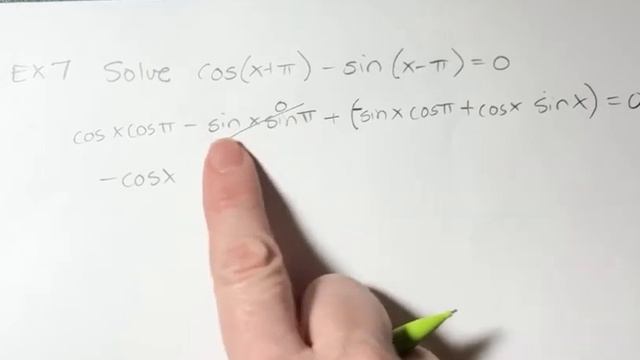 EX 7 Solve cos(x+π) - sin(x-π) = 0
cos x cos π - sin x sin π 0 + (-sin x cos π + cos x sin x) = 0
- cos x